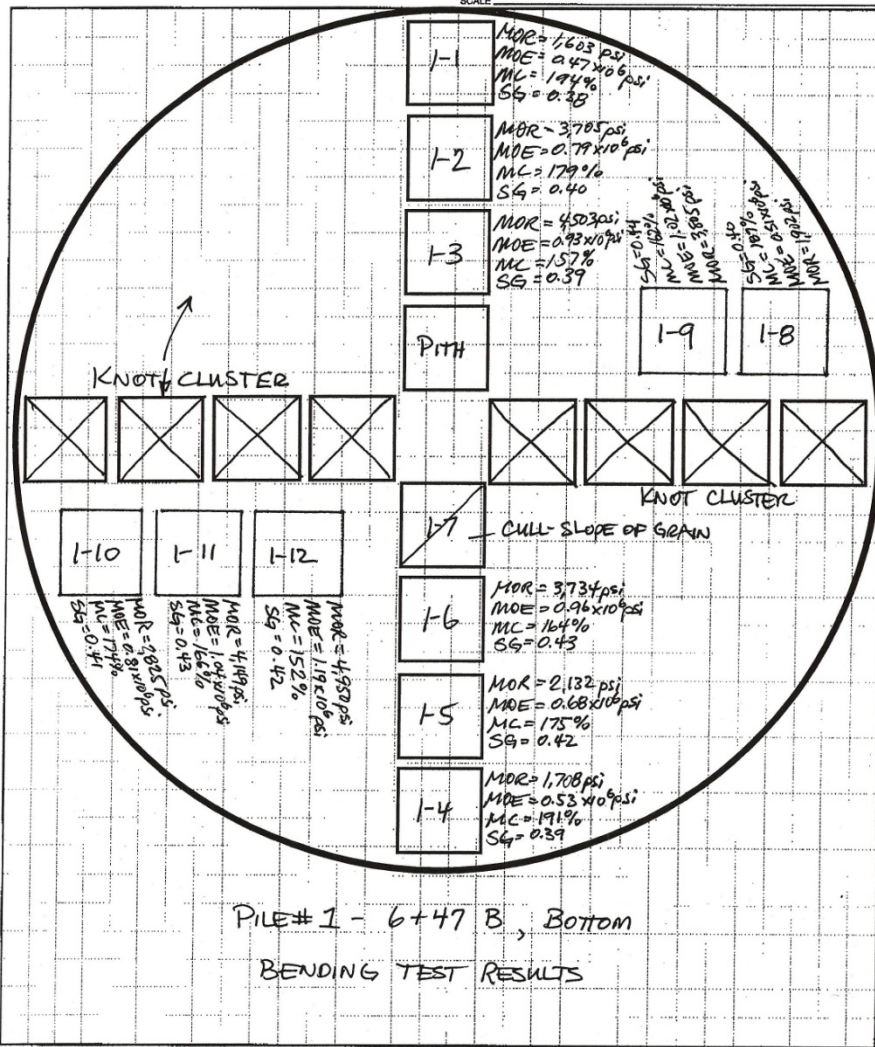 SCALE
1-1
MOR = 1,603 psi
MOE = 0.47x10⁶psi
MC = 194%
SG = 0.38
1-2
MOR - 3,705psi
MOE = 0.79x10⁶psi
MC = 179%
SG = 0.40
1-3
MOR = 4503psi
MOE = 0.93x10⁶psi
MC = 157%
SG = 0.39
1-9
MOR = 3,885psi
SG = 0.44
1-8
MOR = 1,602psi
MOE = 0.51x10⁶psi
MC = 187%
SG = 0.40
PITH
KNOT CLUSTER
KNOT CLUSTER
1-7
CULL-SLOPE OF GRAIN
1-10
MOR = 2,825psi
MOE = 0.81x10⁶psi
MC = 174%
SG = 0.41
1-11
MOR = 4,149psi
MOE = 1.04x10⁶psi
MC = 166%
SG = 0.43
1-12
MOR = 4,950psi
MOE = 1.19x10⁶psi
MC = 152%
SG = 0.42
1-6
MOR = 3,734psi
MOE = 0.96x10⁶psi
MC = 164%
SG = 0.43
1-5
MOR = 2,132psi
MOE = 0.68x10⁶psi
MC = 175%
SG = 0.42
1-4
MOR = 1,708psi
MOE = 0.53x10⁶psi
MC = 191%
SG = 0.39
PILE# 1 - 6+47 B, BOTTOM
BENDING TEST RESULTS